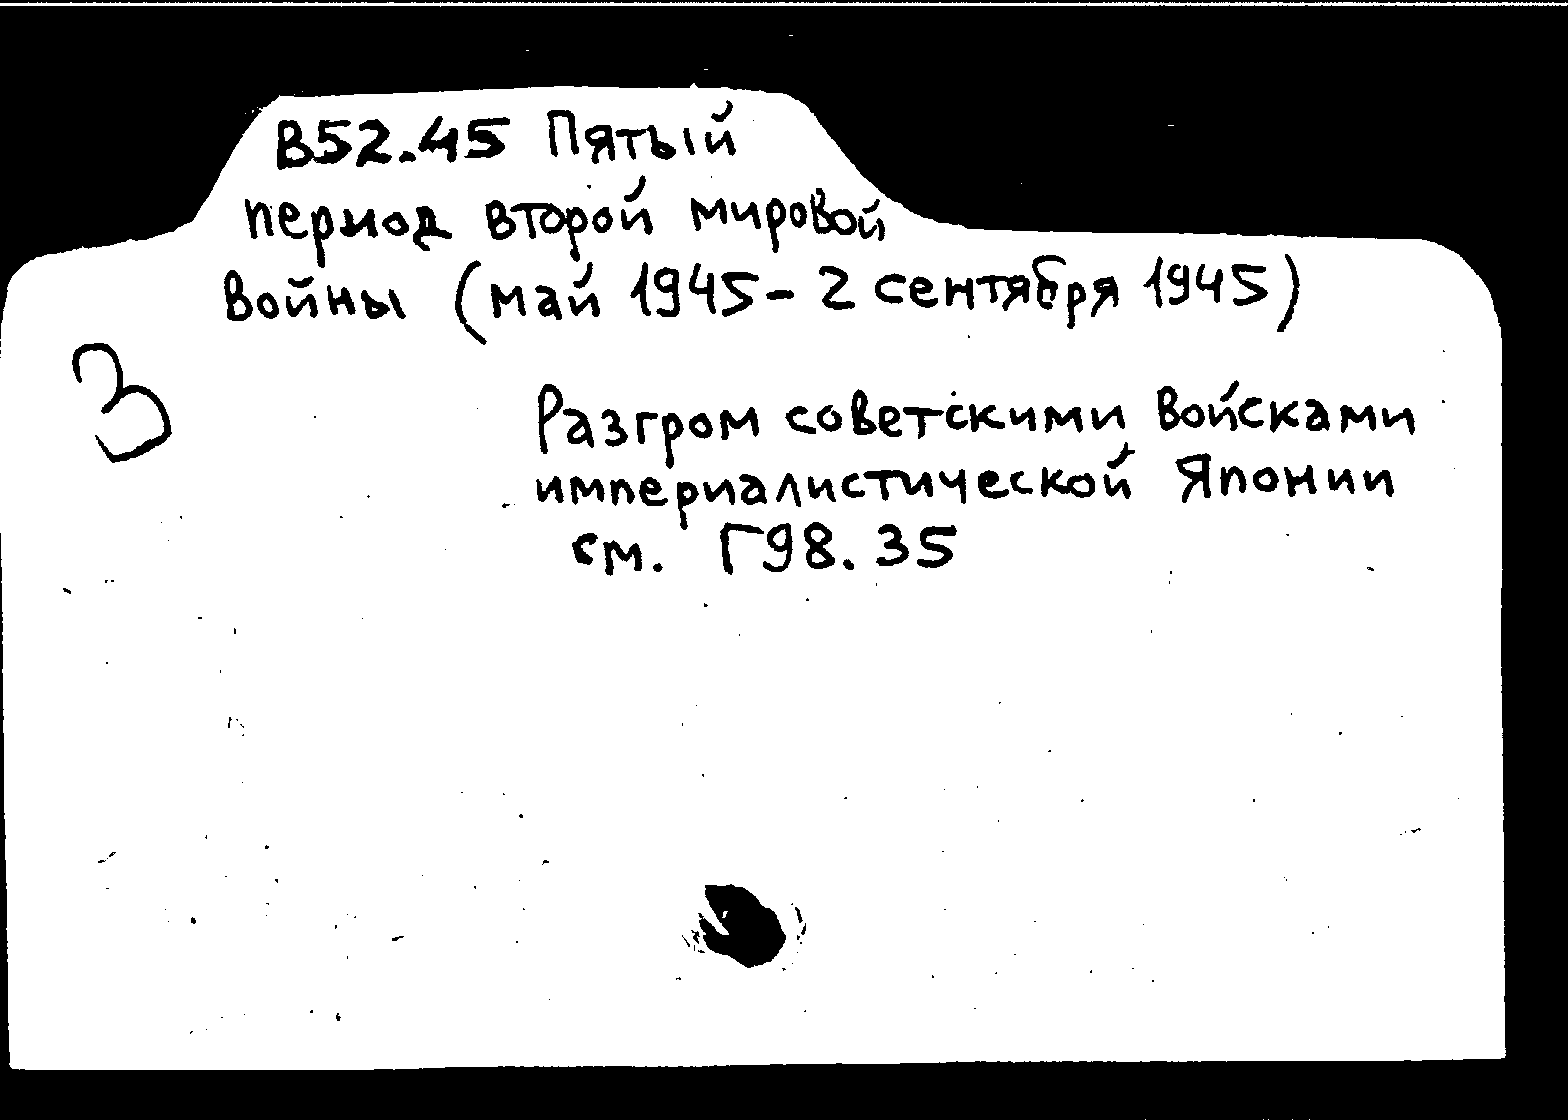 В52.45 Пятый
период второй мировой
войны (май 1945 - 2 сентября 1945)
3
Разгром советскими войсками
империалистической Японии
см. Г98.35